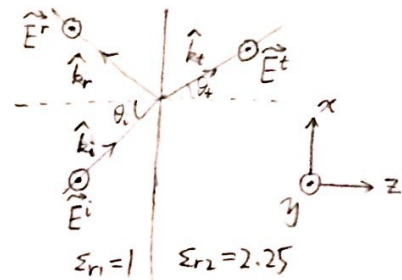 E⃗ʳ
k̂ᵣ
k̂ₜ
E⃗ᵗ
θᵢ
θₜ
k̂ᵢ
E⃗ⁱ
x
y
z
Σr₁=1
Σr₂=2.25